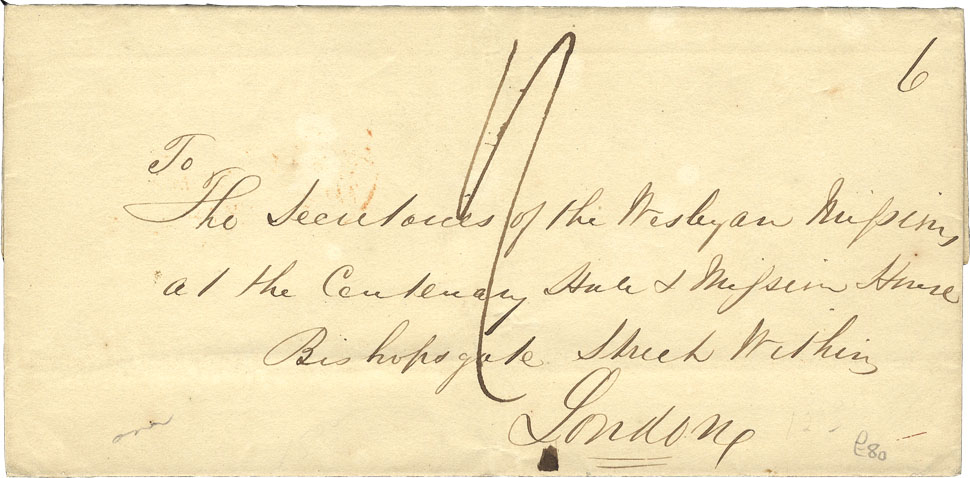 6
To
The Secretaries of the Wesleyan Miſsions
at the Centenary Hall & Miſsion House
Bishopsgate Street Within
London
£80